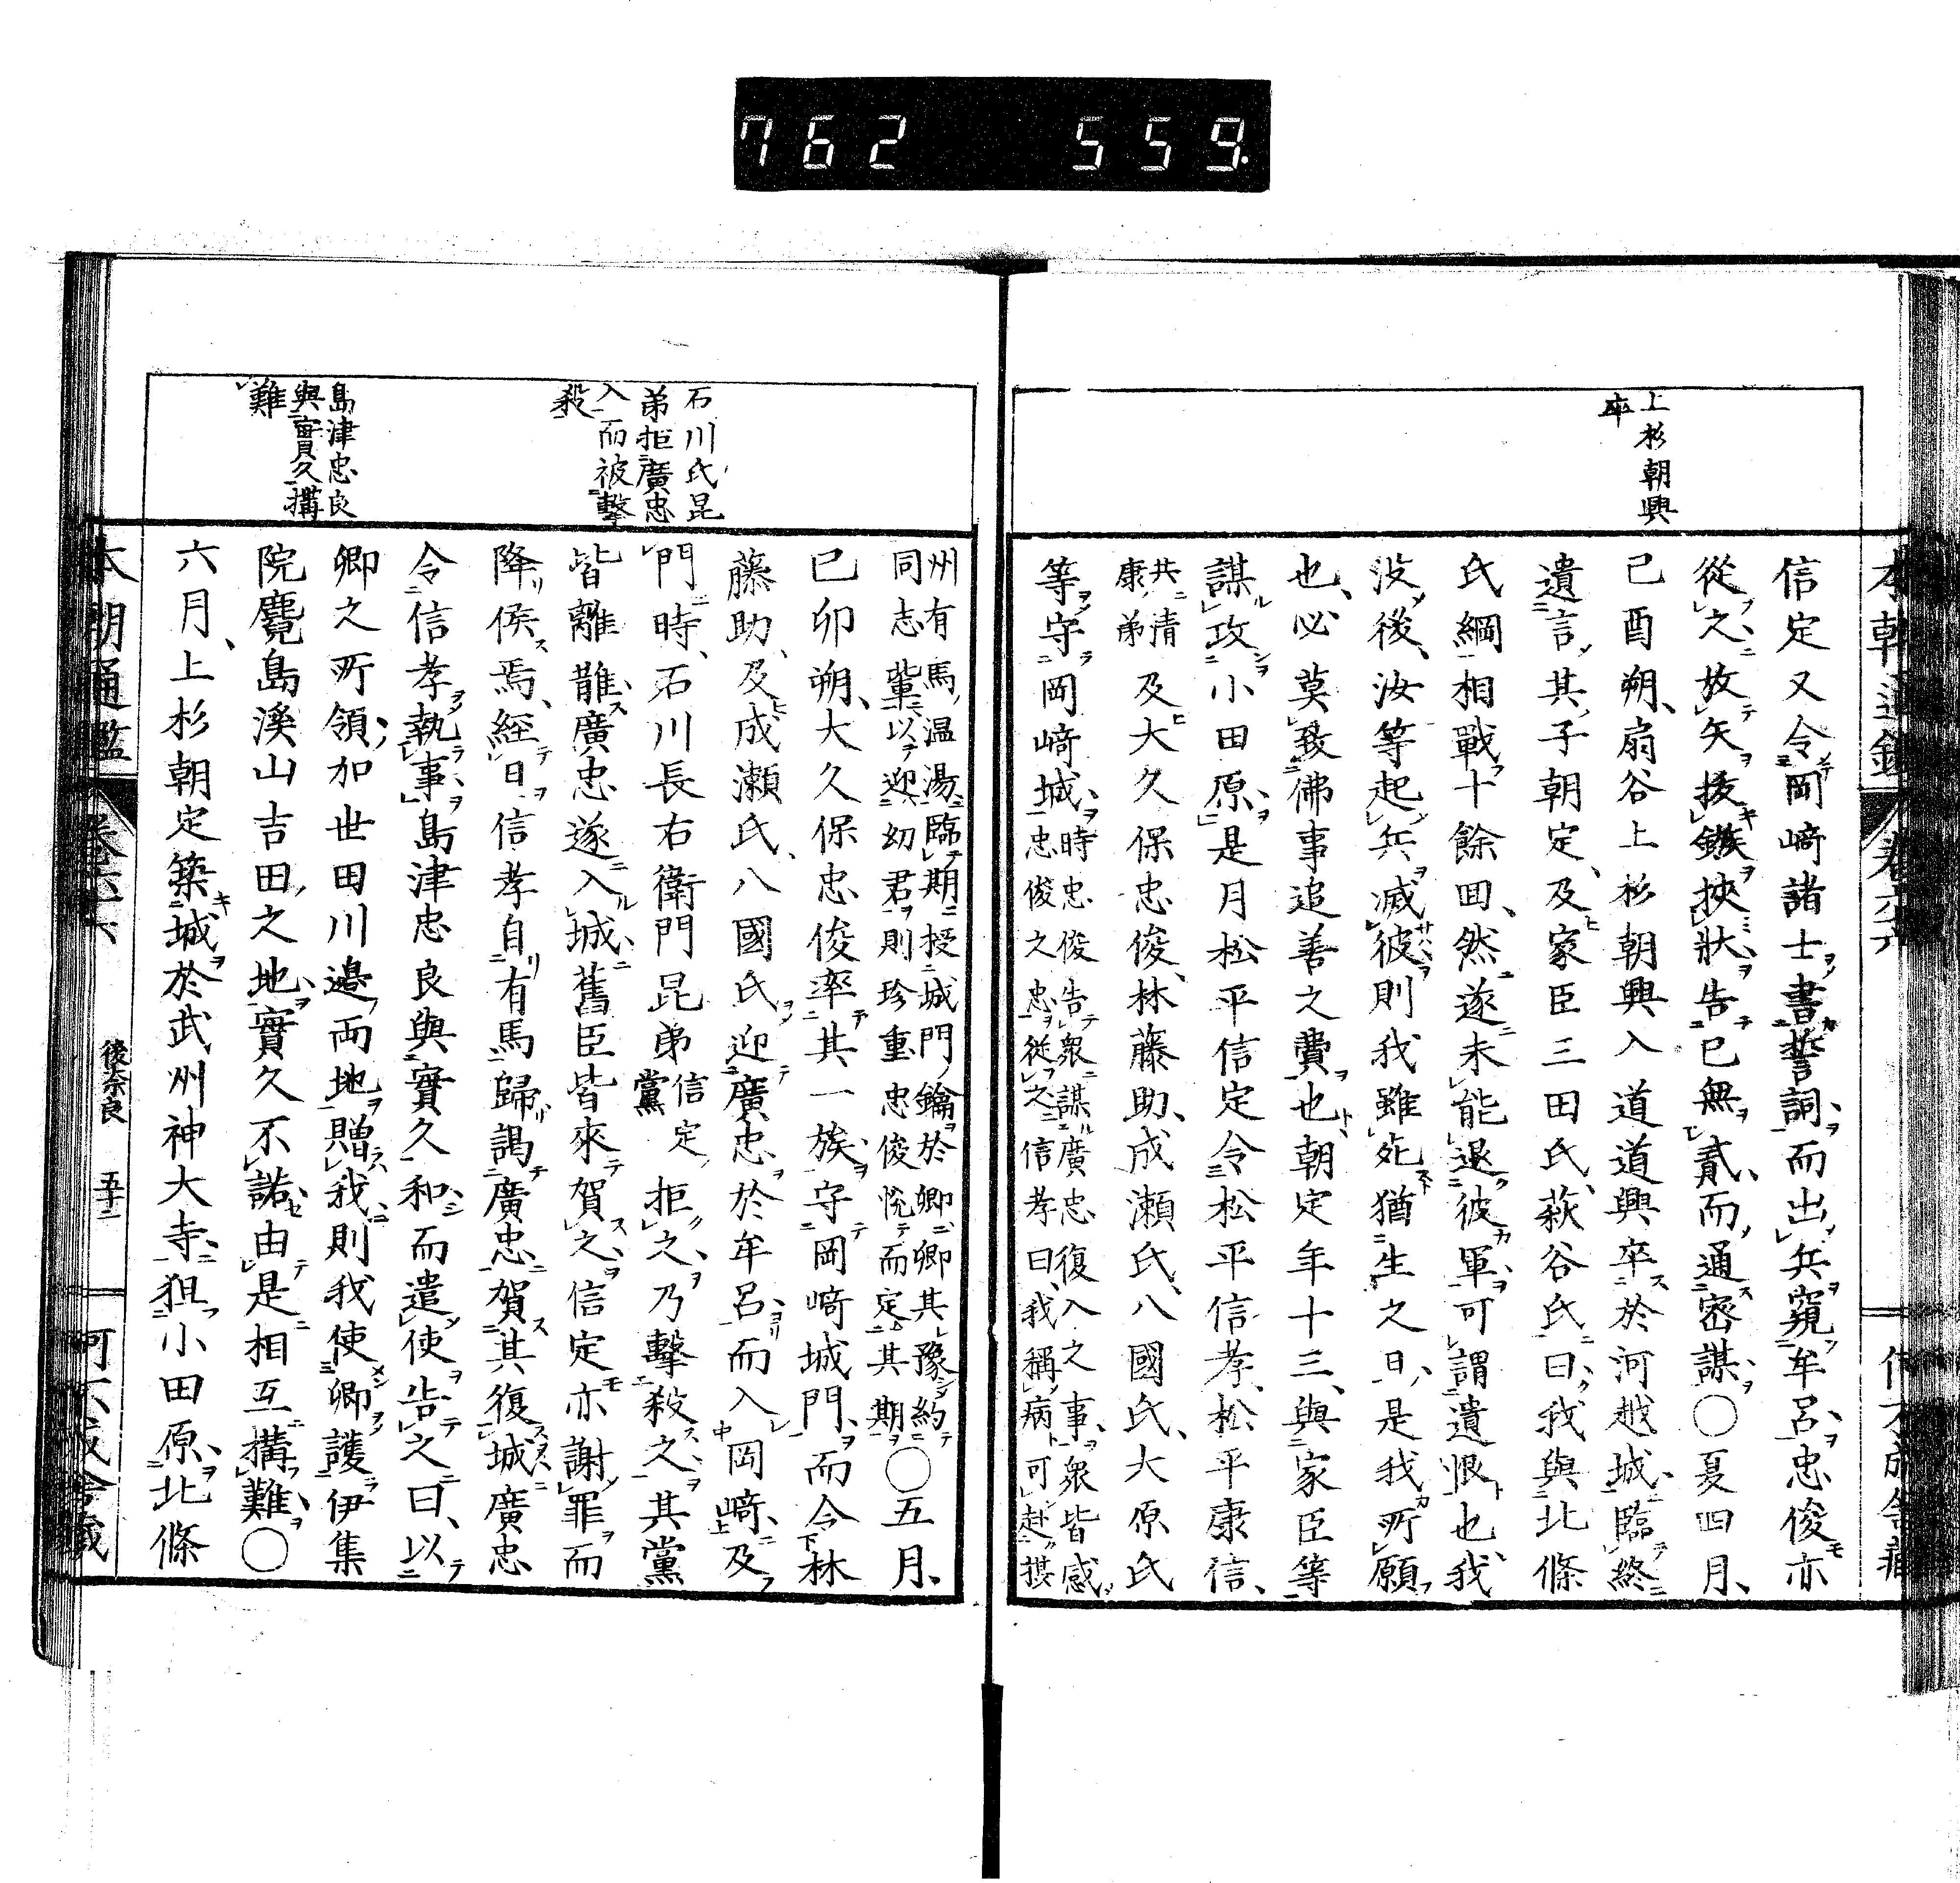 762 559
上杉朝興
卒
信定又令岡﨑諸士書誓詞而出兵窺牟呂忠俊亦
從之故矢拔鏃挾狀告已無貳而通密謀○夏四月
己酉朔扇谷上杉朝興入道道興卒於河越城臨終
遺言其子朝定及家臣三田氏萩谷氏曰我與北條
氏綱相戰十餘回然遂未能退彼軍可謂遺恨也我
沒後汝等起兵滅彼則我雖死猶生之日是我所願
也必莫致佛事追善之費也朝定年十三與家臣等
謀攻小田原是月松平信定令松平信孝松平康信
共清
康弟
及大久保忠俊林藤助成瀬氏八國氏大原氏
等守岡﨑城
時忠俊告衆謀廣忠復入之事衆皆感
忠俊之忠從之信孝曰我稱病可赴摂
州有馬温湯臨期授城門鑰於卿卿其豫約
同志輩以迎幼君則珍重忠俊悦而定其期
○五月
己卯朔大久保忠俊率其一族守岡﨑城門而令林
藤助及成瀬氏八國氏迎廣忠於牟呂而入岡﨑及
門時石川長右衛門昆弟
信定
黨
拒之乃擊殺之其黨
皆離散廣忠遂入城舊臣皆來賀之信定亦謝罪而
降侯焉經日信孝自有馬歸謁廣忠賀其復城廣忠
令信孝執事島津忠良與實久和而遣使告之曰以
卿之所領加世田川邉両地贈我則我使卿護伊集
院麑島溪山吉田之地實久不諾由是相互搆難○
六月上杉朝定築城於武州神大寺狙小田原北條
石川氏昆
弟拒廣忠
入而被擊
殺
島津忠良
與實久搆
難
本朝通鑑
卷六六
後奈良
五十二